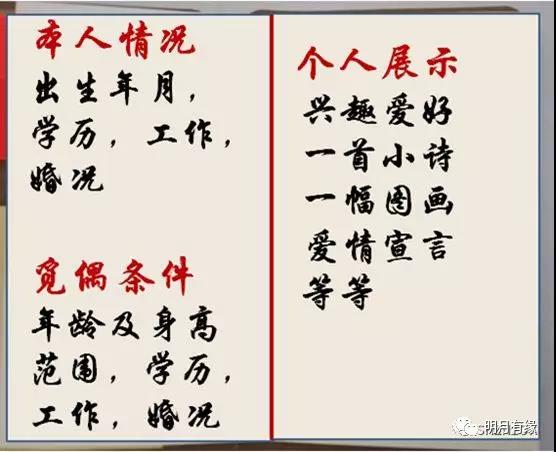 本人情况
出生年月，
学历，工作，
婚况
觅偶条件
年龄及身高
范围，学历，
工作，婚况
个人展示
兴趣爱好
一首小诗
一幅图画
爱情宣言
等等
s明月有缘